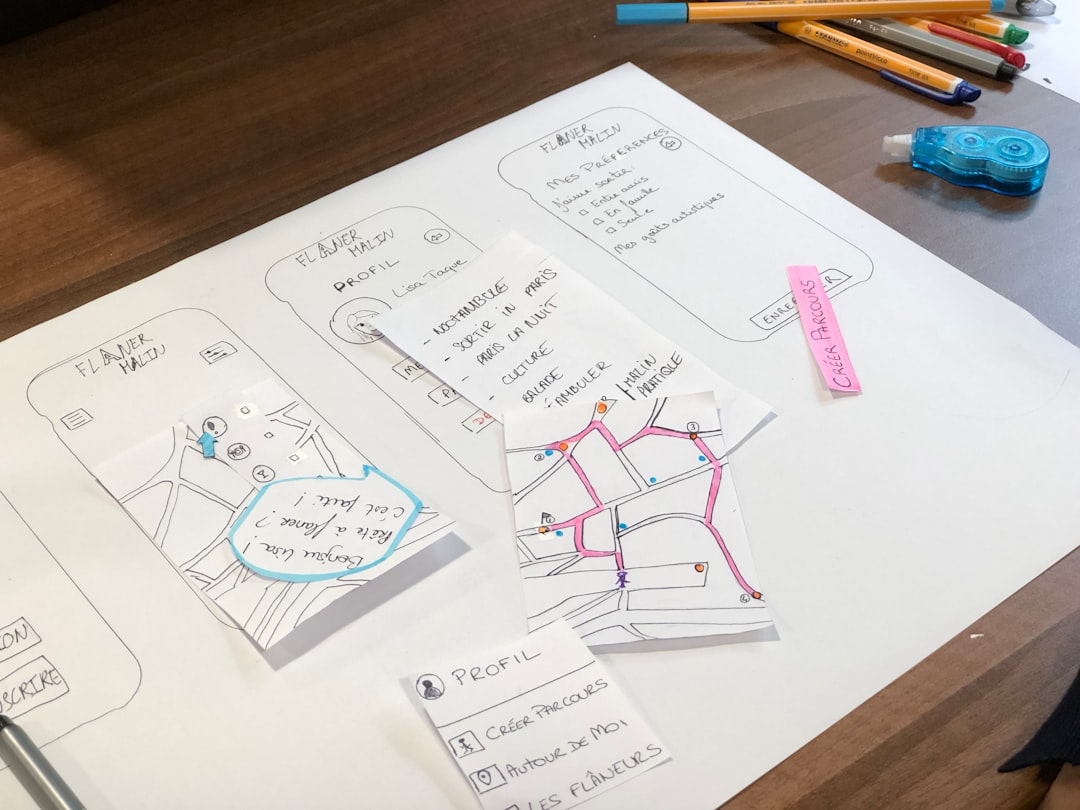 FLANER
MALIN
MES PRÉFERENCES
J'aime sortir:
Entre amis
En famille
Seule
Mes goûts artistiques
CRÉER PARCOURS
FLANER
MALIN
PROFIL
Lisa Taque
- NOCTAMBULE
- SORTIR IN PARIS
- PARIS LA NUIT
CULTURE
BALADE
AMBULER
MALIN
PRATIQUE
FLANER
MALIN
Bonjour Lisa!
Prête à flaner?
C'est parti!
1
2
3
4
PROFIL
CRÉER PARCOURS
AUTOUR DE MOI
LES FLÂNEURS